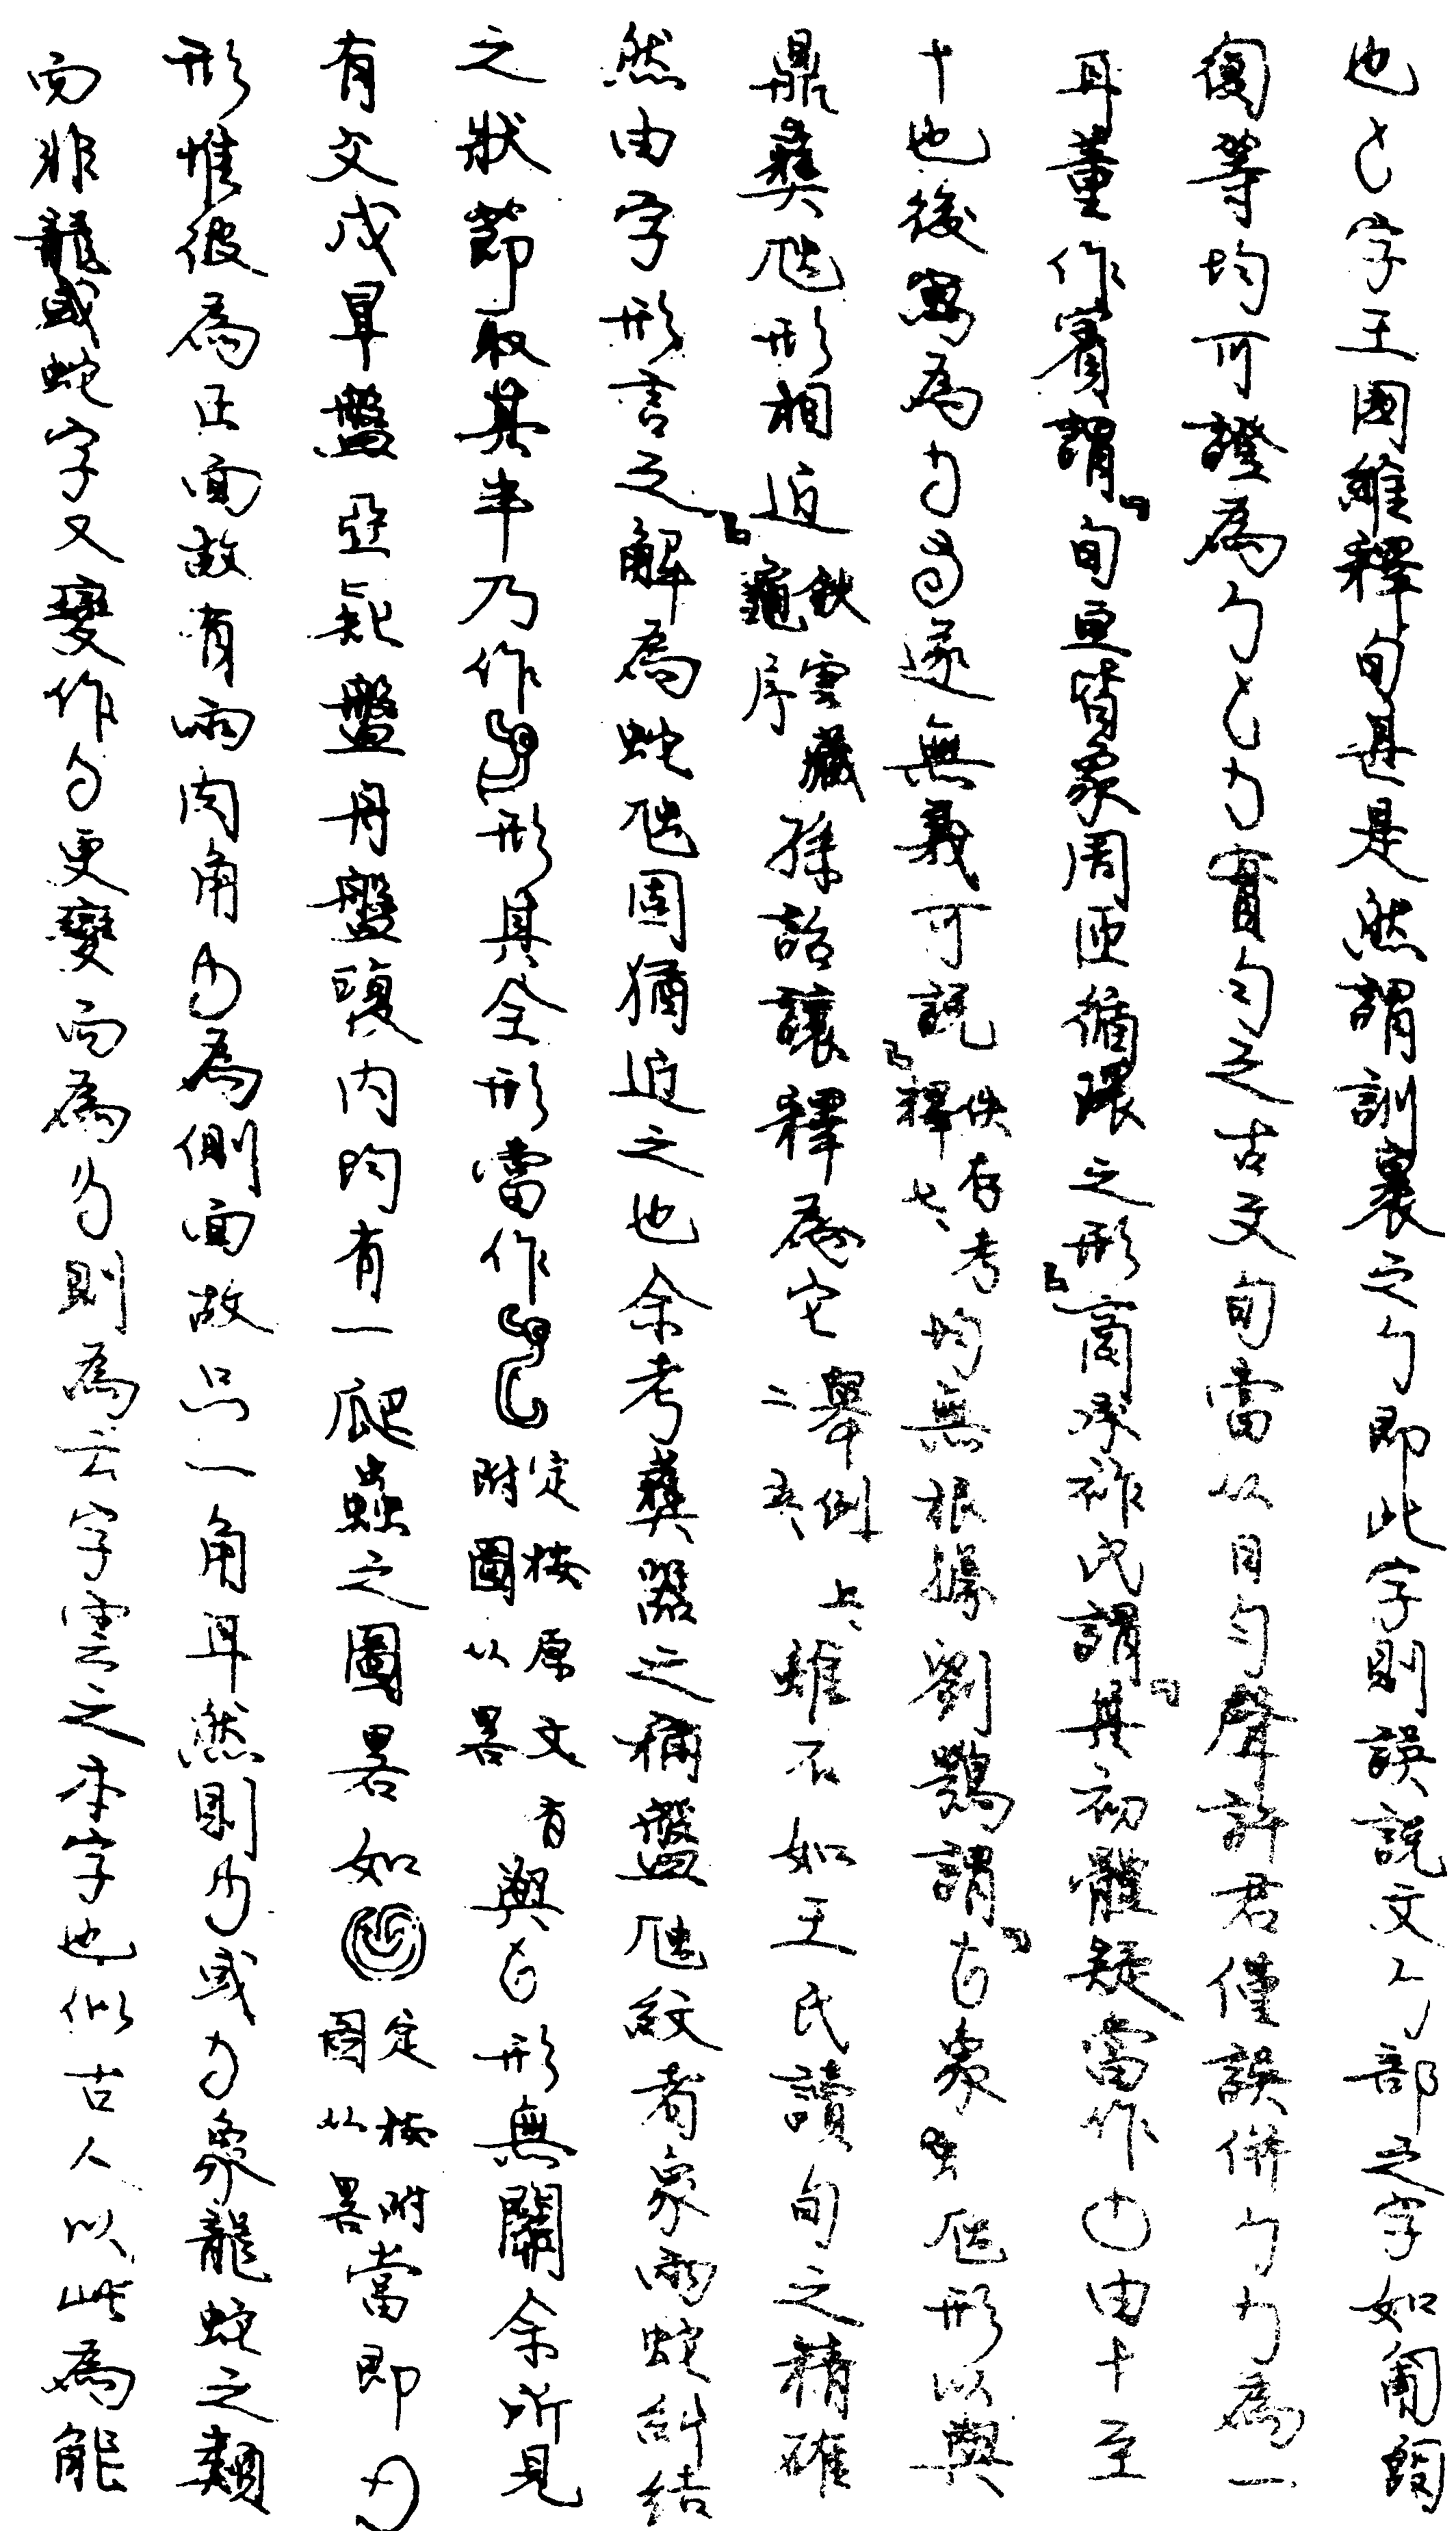 也字王國維釋旬甚是然謂訓裹之勹即此字則誤說文勹部之字如匍匐
匎等均可證為勹旬之古文旬當从日勻聲許君僅誤併勹為一
耳董作賓謂「旬亘皆象周匝循環之形」商承祚氏謂「其初體疑當作由十至
十也後寫為遂無義可說」佚存考釋七、均無根據劉鶚謂「象虫虺形以與
鼎彝虺形相近」鉄雲藏龜序孫詒讓釋為它舉例上、二五、雖不如王氏讀旬之精確
然由字形言之解為蛇虺固猶近之也余考彝器之稱盤虺紋者象兩蛇糾結
之狀節取其半乃作形具全形當作定按原文有附圖以畧與形無關余所見
有父戊㫗盤亞盤舟盤腹內均有一爬蟲之圖畧如定按附圖以畧當即
形惟彼為正面故有兩肉角為側面故只一角耳然則或象龍蛇之類
而非龍或蛇字又變作更變而為則為云字雲之本字也似古人以此為能